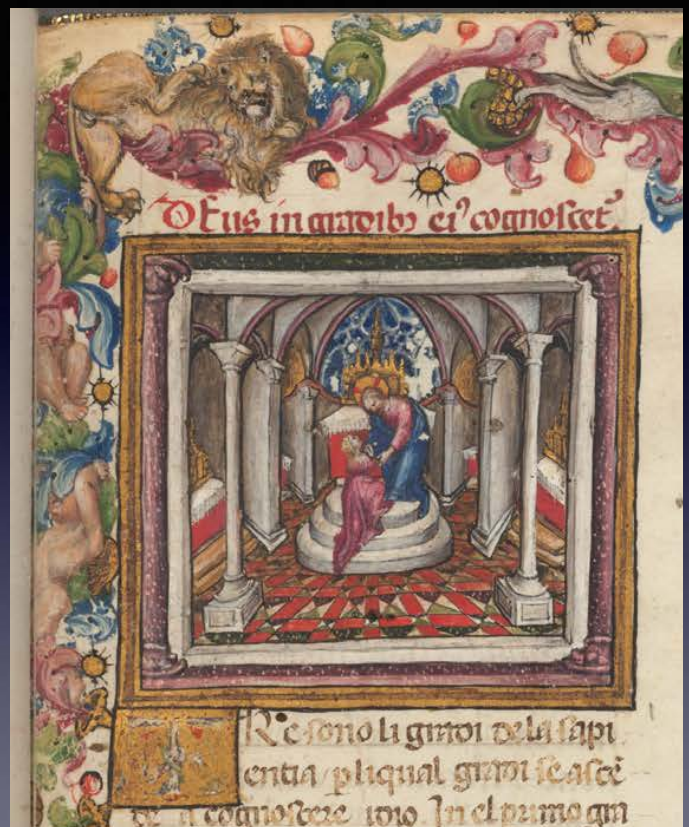 DEus in gradibꝫ eiꝰ cognoscet᷒
TRe sono li gradi dela sapi
entia pliqual gradi se ascē
de a cognoscere idio. In el primo gra